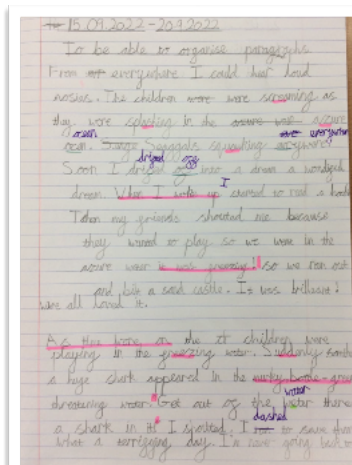 15.09.2022 - 20.9.2022
To be able to organise paragraphs
From everywhere I could hear loud
noises. The children were screaming as
they were splashing in the azure
ocean everywhere
Seagulls squawking
drifed off
Soon I into a dream a
dream. When I woke up I started to read a book
Then my friends shouted me because
they wanted to play so we were in the
azure water it was freezing! so we ran out
and bilt a sand castle. It was brilliant!
we all loved it.
As the were on the children were
playing in the freezing water. Suddenly
a huge shark appeared in the murky
threatening water. Get out of the water there
dashed
a shark in it! I I to save
What a terrifying day. I'm never going back to